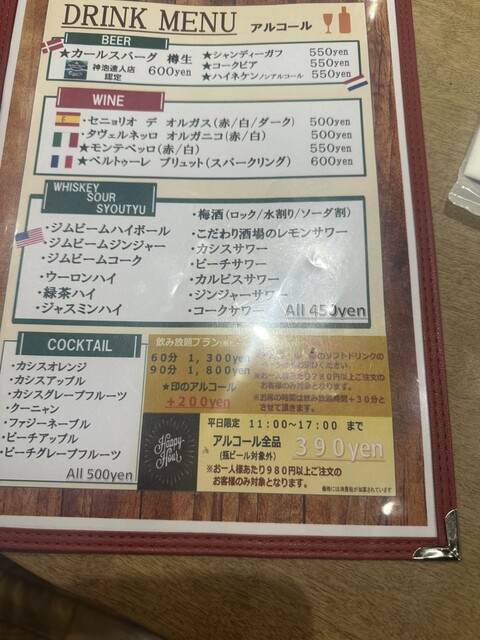 DRINK MENU アルコール
BEER
★カールスバーグ 樽生
神泡達人店
認定
600yen
★シャンディーガフ 550yen
★コークビア 550yen
★ハイネケンノンアルコール 550yen
WINE
・セニョリオ デ オルガス(赤/白/ダーク) 500yen
・タヴェルネッロ オルガニコ(赤/白) 500yen
★モンテベッロ(赤/白) 550yen
★ベルトゥーレ ブリュット(スパークリング) 600yen
WHISKEY
SOUR
SYOUTYU
・ジムビームハイボール
・ジムビームジンジャー
・ジムビームコーク
・ウーロンハイ
・緑茶ハイ
・ジャスミンハイ
・梅酒(ロック/水割り/ソーダ割)
・こだわり酒場のレモンサワー
・カシスサワー
・ピーチサワー
・カルピスサワー
・ジンジャーサワー
・コークサワー
All 450yen
COCKTAIL
・カシスオレンジ
・カシスアップル
・カシスグレープフルーツ
・クーニャン
・ファジーネーブル
・ピーチアップル
・ピーチグレープフルーツ
All 500yen
飲み放題プラン
60分 1,300yen
90分 1,800yen
★印のアルコール
+200yen
ソフトドリンクの
お客様のみ対象となります。
させて頂きます。
Happy
Hour
平日限定 11:00～17:00 まで
アルコール全品
(瓶ビール対象外)
390yen
※お一人様あたり980円以上ご注文の
お客様のみ対象となります。
価格には消費税が加算されています